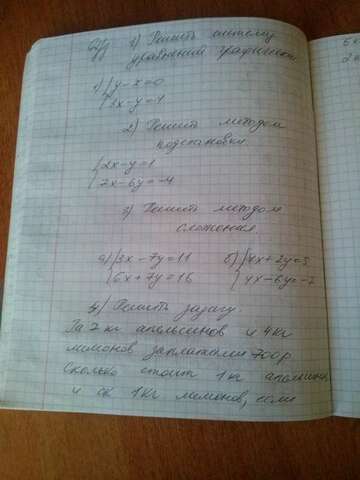 Д/з 1) Решить систему
уравнений графически
1) { y - x = 0
3x - y = 4
2) Решить методом
подстановки
{ 2x - y = 1
7x - 6y = -4
3) Решить методом
сложения.
а) { 3x - 7y = 11 б) { 4x + 2y = 5
6x + 7y = 16 4x - 6y = -7
4) Решить задачу
За 7 кг апельсинов и 4 кг
лимонов заплатили 700р
Сколько стоит 1 кг
и ск 1 кг лимонов, если